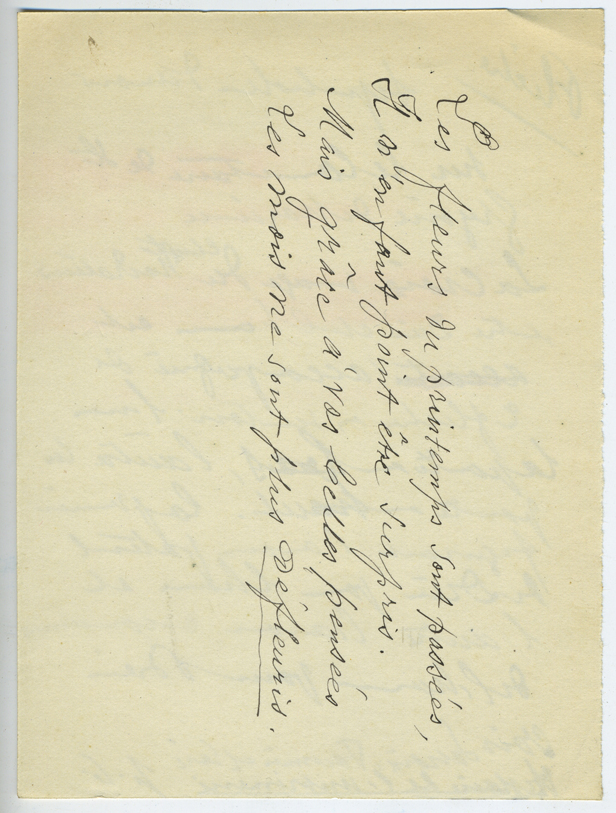 Les fleurs du printemps sont passées,
Il n'en faut point être surpris.
Mais grâce à vos belles pensées
Les mois ne sont plus défleuris.